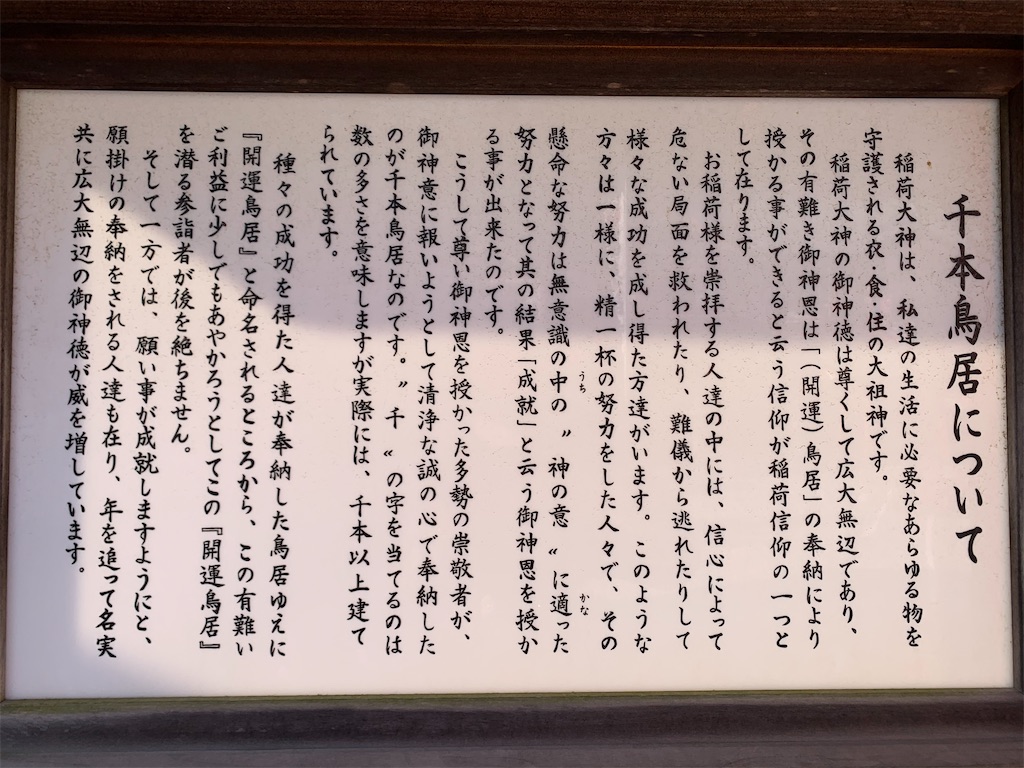 千本鳥居について
稲荷大神は、私達の生活に必要なあらゆる物を
守護される衣・食・住の大祖神です。
稲荷大神の御神徳は尊くして広大無辺であり、
その有難き御神恩は「（開運）鳥居」の奉納により
授かる事ができると云う信仰が稲荷信仰の一つと
して在ります。
お稲荷様を崇拝する人達の中には、信心によって
危ない局面を救われたり、難儀から逃れたりして
様々な成功を成し得た方達がいます。このような
方々は一様に、精一杯の努力をした人々で、その
懸命な努力は無意識の中の〃神の意〃に適った
うち
かな
努力となって其の結果「成就」と云う御神恩を授か
る事が出来たのです。
こうして尊い御神恩を授かった多勢の崇敬者が、
御神意に報いようとして清浄な誠の心で奉納した
のが千本鳥居なのです。〃千〃の字を当てるのは
数の多さを意味しますが実際には、千本以上建て
られています。
種々の成功を得た人達が奉納した鳥居ゆえに
『開運鳥居』と命名されるところから、この有難い
ご利益に少しでもあやかろうとしてこの『開運鳥居』
を潜る参詣者が後を絶ちません。
そして一方では、願い事が成就しますようにと、
願掛けの奉納をされる人達も在り、年を追って名実
共に広大無辺の御神徳が威を増しています。